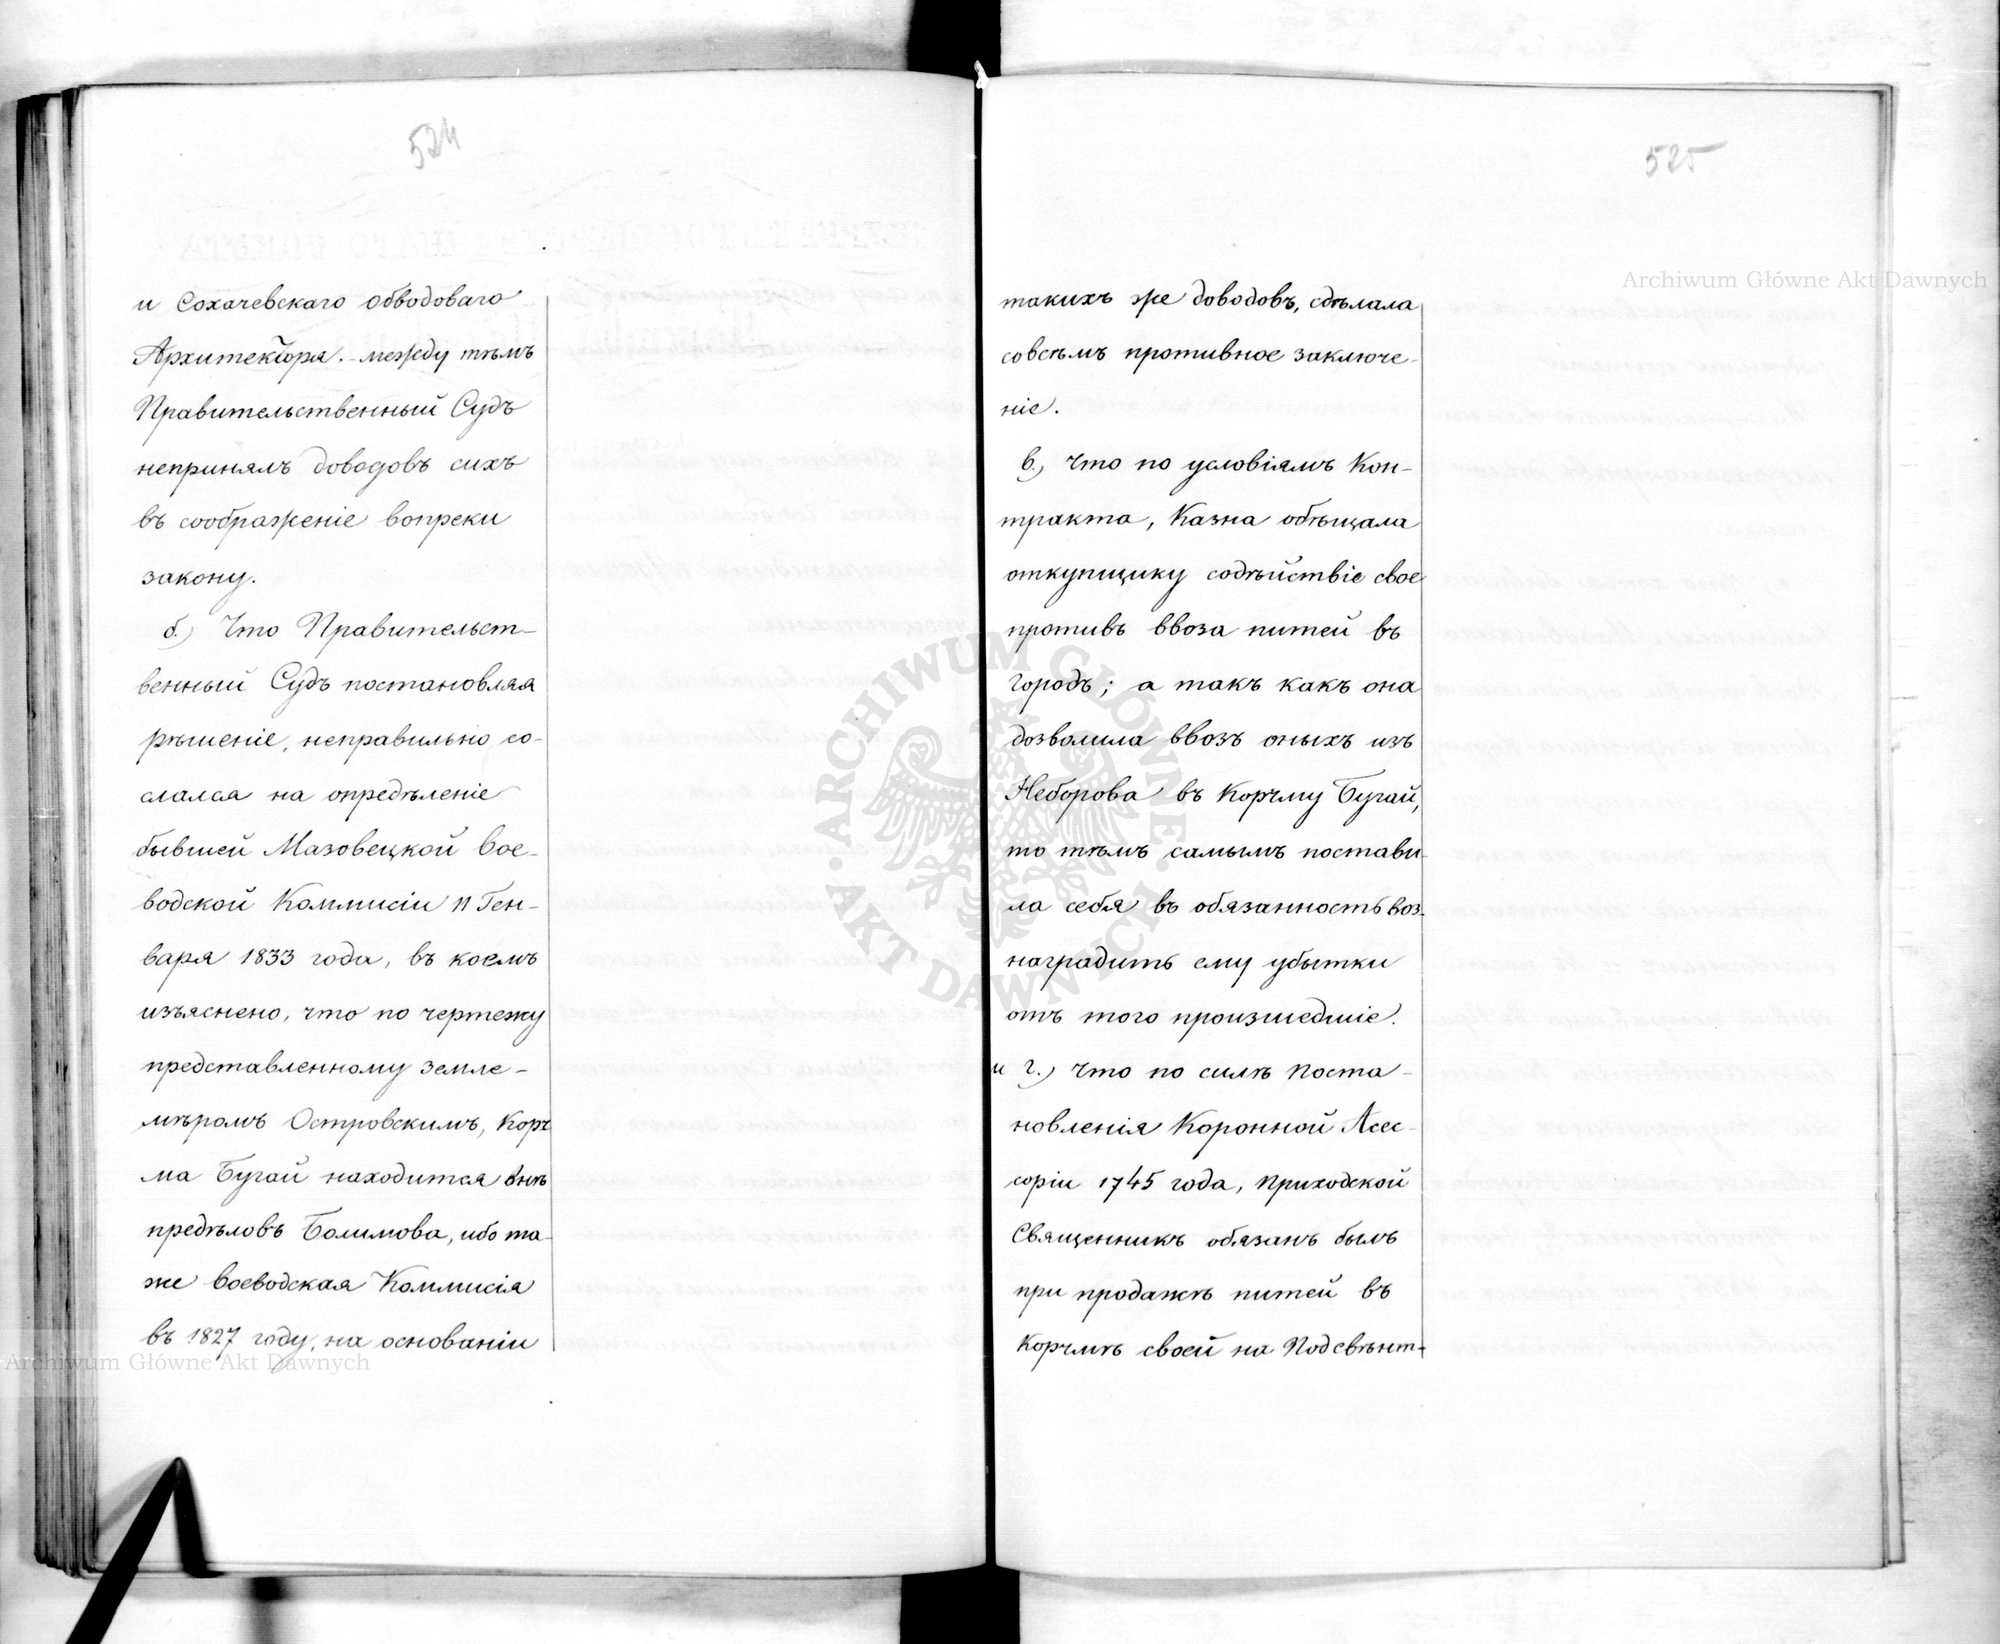 524
и Сохачевскаго обводоваго
Архитектора. – между тѣмъ
Правительственный Судъ
непринялъ доводовъ сихъ
въ соображеніе вопреки
закону.
б.) Что Правительст-
венный Судъ постановляя
рѣшеніе, неправильно со-
слался на опредѣленіе
бывшей Мазовецкой Вое-
водской Коммисіи 11 Ген-
варя 1833 года, въ коемъ
изъяснено, что по чертежу
представленному Земле-
мѣромъ Островскимъ, Корч
ма Бугай находится внѣ
предѣловъ Болимова, ибо та-
же Воеводская Коммисія
въ 1827 году, на основаніи
525
такихъ же доводовъ, сдѣлала
совсѣмъ противное заключе-
ніе.
в.) Что по условіямъ Кон-
тракта, Казна обѣщала
откупщику содѣйствіе свое
противъ ввоза питей въ
городъ; а такъ какъ она
дозволила ввозъ оныхъ изъ
Неборова въ Корчму Бугай,
то тѣмъ самымъ постави-
ла себя въ обязанность воз-
наградить ему убытки
отъ того произшедшіе.
и г.) Что по силѣ поста-
новленія Коронной Асес-
соріи 1745 года, Приходской
Священникъ обязанъ былъ
при продажѣ питей въ
Корчмѣ своей на Подсвѣнт-
Archiwum Główne Akt Dawnych
Archiwum Główne Akt Dawnych
ARCHIWUM GŁÓWNE
AKT DAWNYCH